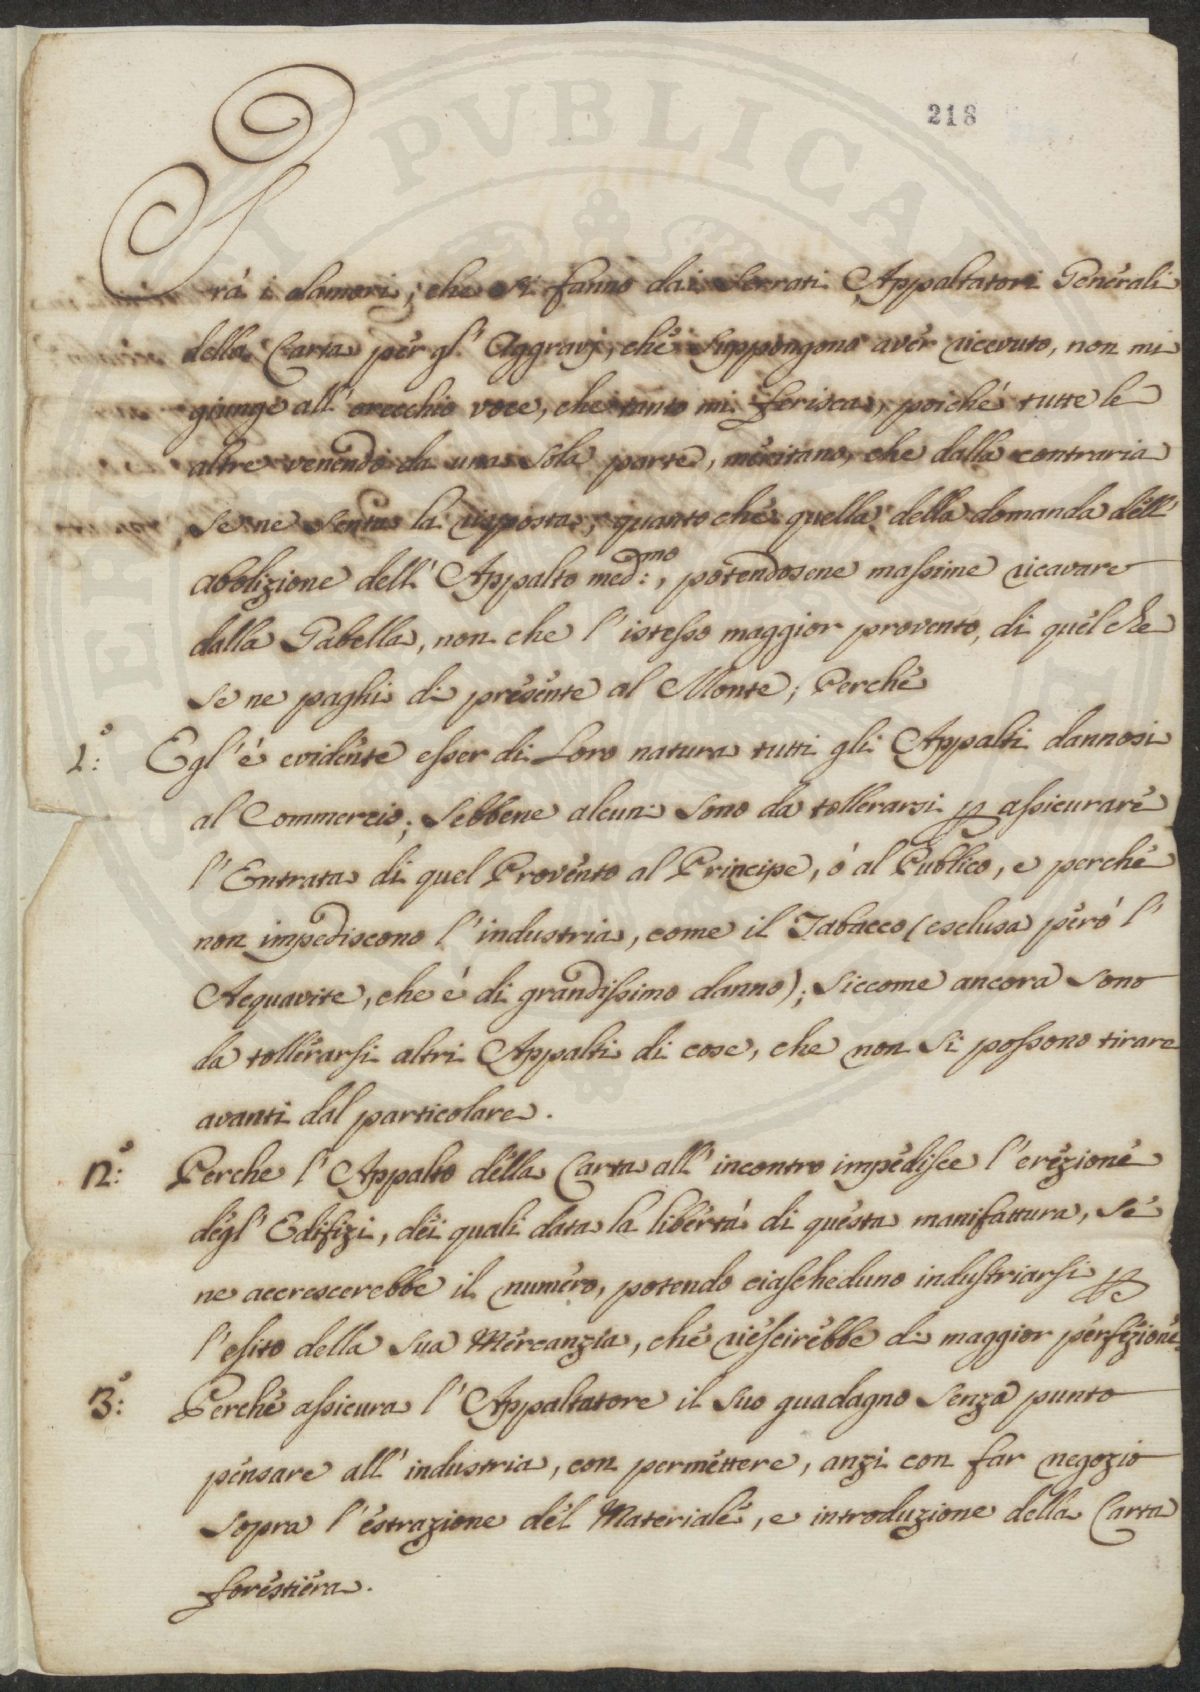 218
Trà i clamori, che si fanno dai Serrati Appaltatori Generali
della Carta per gl' Aggravj, che suppongono aver ricevuto, non mi
giunge all' orecchio voce, che tanto mi ferisca, poiché tutte le
altre venendo da una sola parte, meritano, che dalla contraria
se ne senta la risposta, quanto che quella della domanda dell'
abolizione dell' Appalto med:mo, potendosene massime ricavare
dalla Gabella, non che l' istesso maggior provento, di quel che
se ne paghi di presente al Monte; Perche
1:° Egl' é evidente esser di Loro natura tutti gli Appalti dannosi
al Commercio; Sebbene alcuni sono da tollerarsi p assicurare
l' Entrata di quel Provento al Principe, ó al Publico, e perche
non impediscono l' industria, come il Tabacco (esclusa peró l'
Acquavite, che é di grandissimo danno); siccome ancora sono
da tollerarsi altri Appalti di cose, che non si possono tirare
avanti dal particolare.
2:° Perche l' Appalto della Carta all' incontro impedisce l' erezione
degl' Edifizi, dei quali data la libertá di questa manifattura, se
ne accrescerebbe il numero, potendo ciascheduno industriarsi p
l' esito della sua Mercanzia, che riescirebbe di maggior perfezione.
3:° Perche assicura l' Appaltatore il suo guadagno senza punto
pensare all' industria, con permettere, anzi con far negozio
sopra l' estrazione del Materiale, e introduzione della Carta
forestiera.